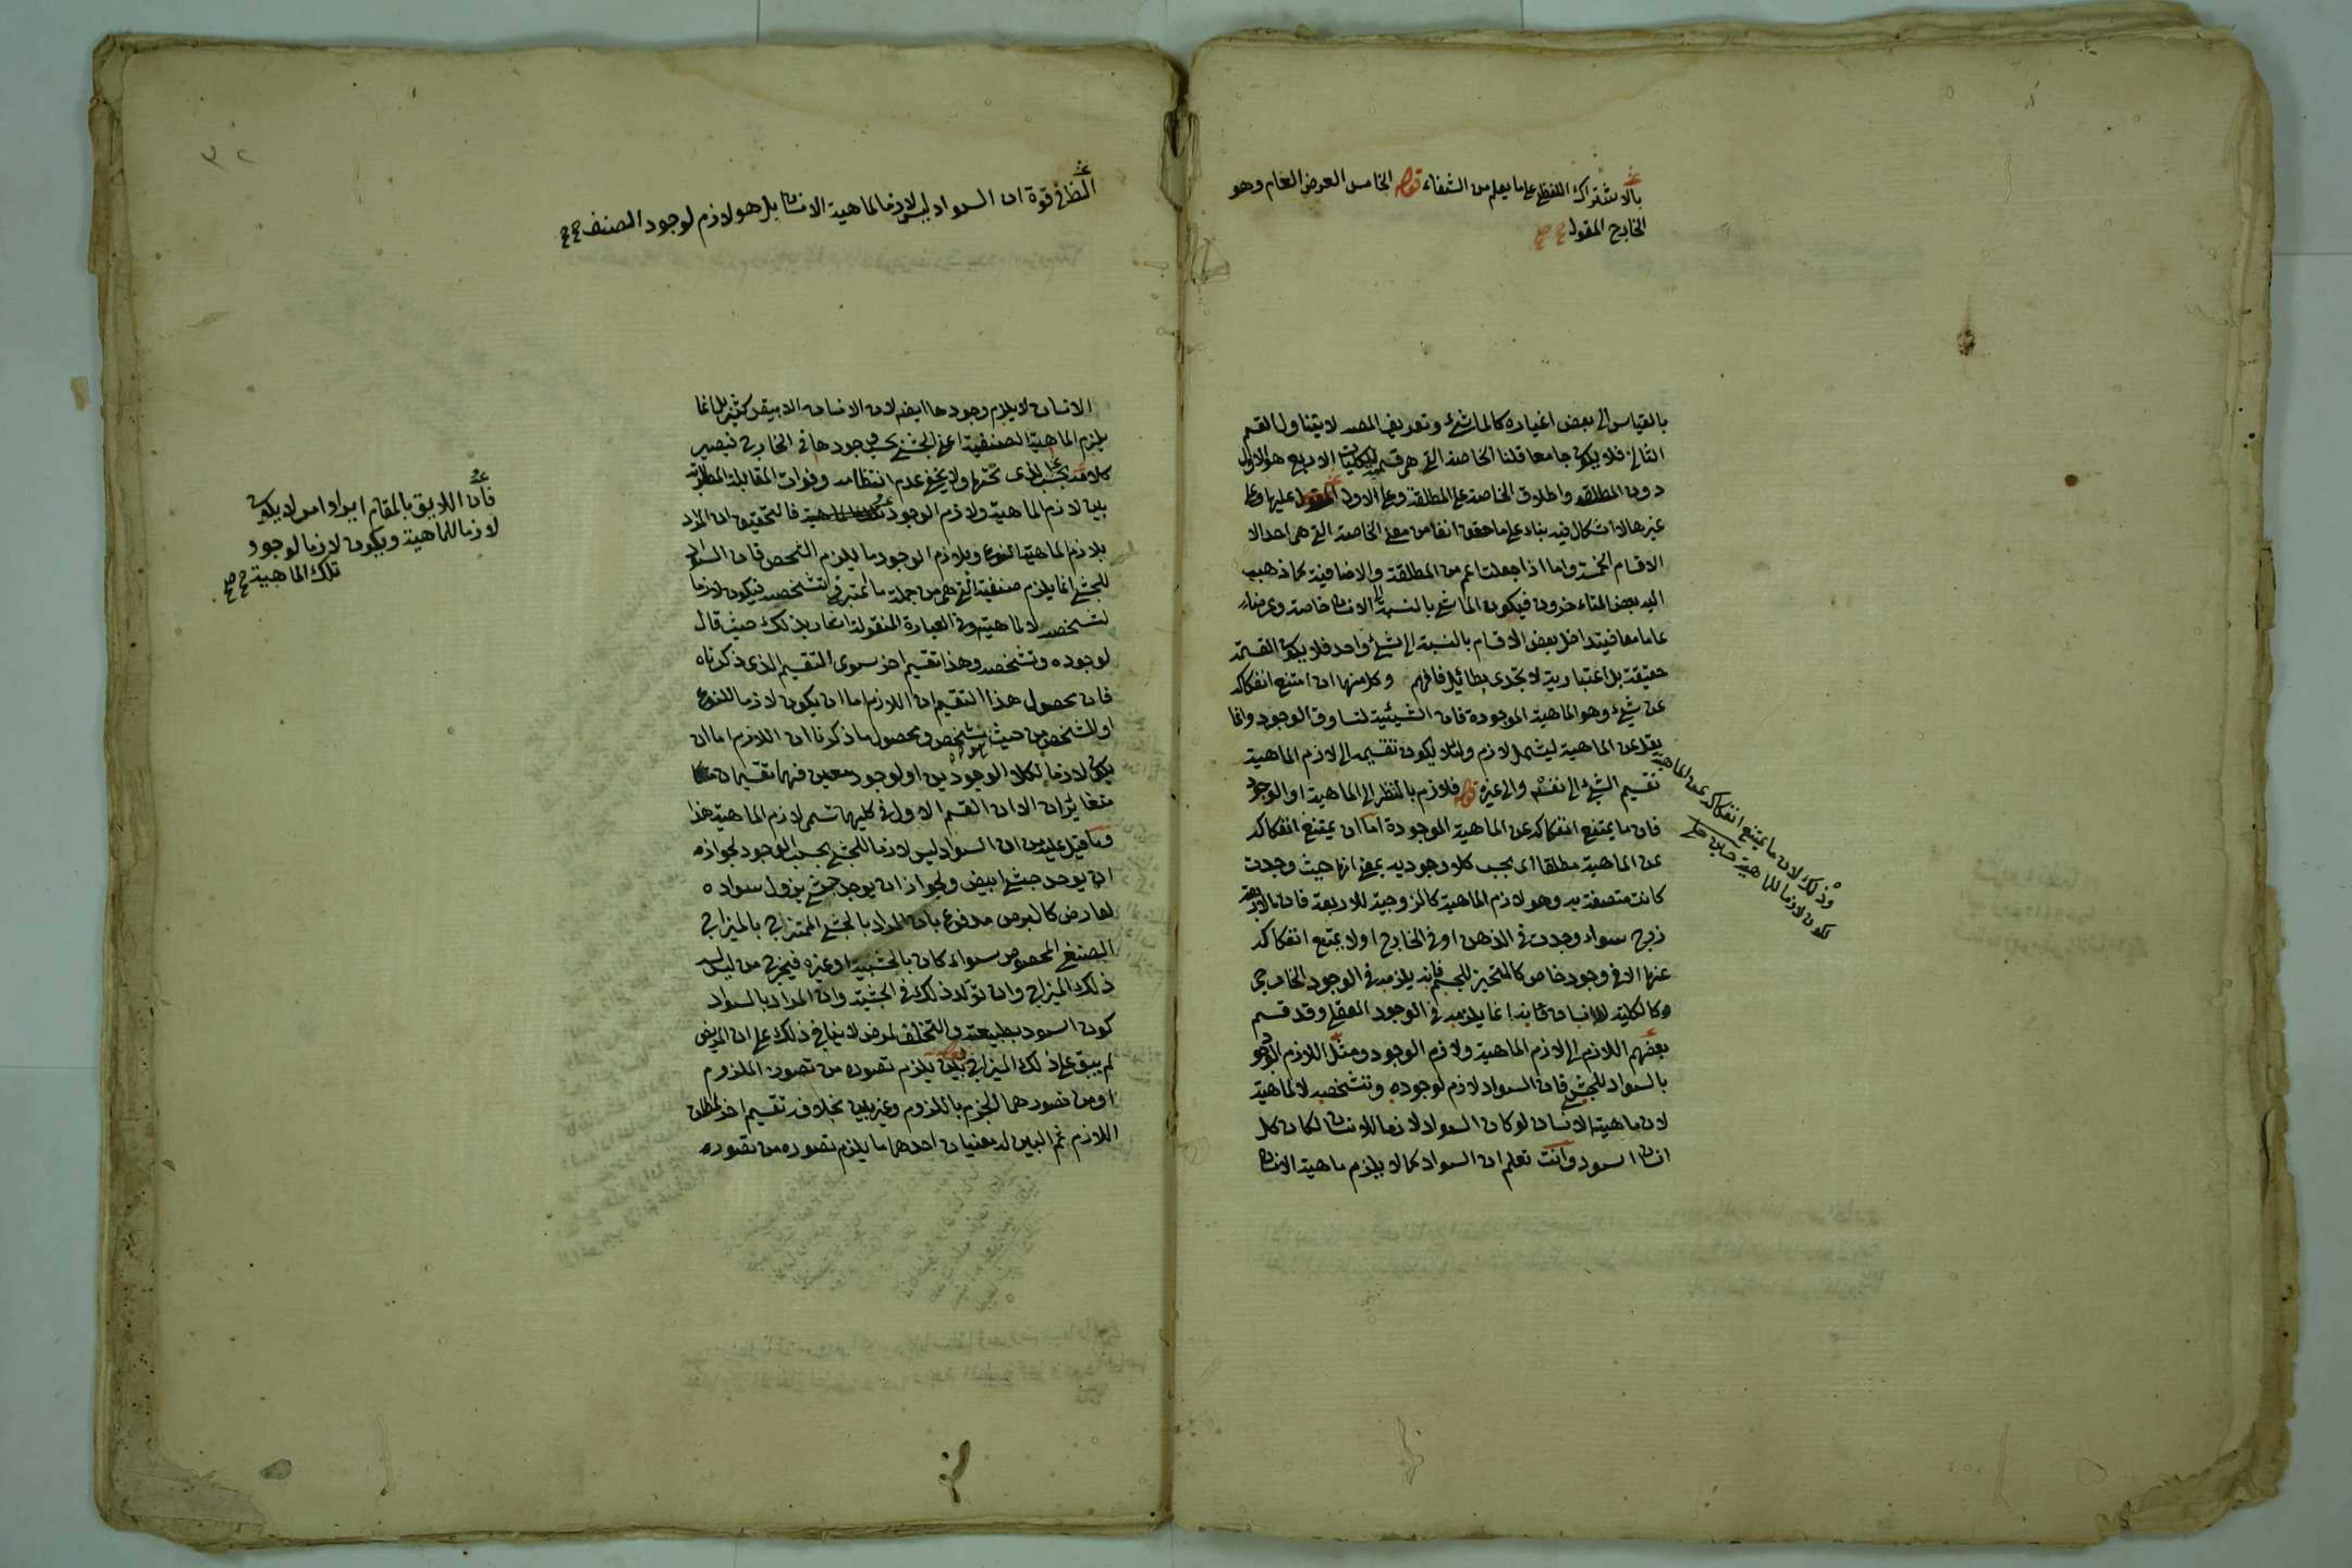 بالاشتراك اللفظ على ما يعلم من الشفاء قوله الخامس العرض العام وهو
الخارج المقول صح
بالقياس الى بعض اغياره كالماشئ وتعريف المصه لا يتناول القسم
الثانى فلا يكون جامعا قلنا الخاصة التى هى قسم للكليات الاربع هو الاول
دون المطلقه واطلاق الخاصة على المطلقة وعلى الاول المقول عليها وعلى
غيرها لا اشكال فيه بناء على ما حقق انفا من معنى الخاصة التى هى احد الا
الاقسام الخمسة واما اذا جعلت اعم من المطلقة والاضافية كما ذهب
اليه بعض المتاءخرون فيكون الماشى بالنسبة الى الانسان خاصة وعرضا
عاما معا فيتداخل بعض الاقسام بالنسبة الى شئ واحد فلا يكون القسمة
حقيقة بل اعتبارية لا تجدى بطائيل فافهم وكل منها ان امتنع انفكاكه
عن شئ وهو الماهية الموجودة فان الشيئية تساوق الوجود وانما
يقل عن الماهية ليشمل لازم ولئلا يكون تقسيمه الى لازم الماهية
تقسيم الشئ الى نفسه والى غيره قوله فلازم بالنظر الى الماهية او الوجود
فان ما يمتنع انفكاكه عن الماهية الموجودة اما ان يمتنع انفكاكه
عن الماهية مطلقا اى بحسب كلا وجوديه بمعنى انها حيث وجدت
كانت متصفة به وهو لازم الماهية كالزوجية للاربعة فان الاربعة
زوج سواء وجدت فى الذهن او فى الخارج اولا يمتنع انفكاكه
عنها الا فى وجود خاص كالتحيز للجسم فانه يلزمه فى الوجود الخارجى
وكالكلية للانسان فانه انما يلزمه فى الوجود العقلى وقد قسم
بعضهم اللازم الى لازم الماهية ولازم الوجود ومثل اللازم الوجود
بالسواد للحبشى فان السواد لازم لوجوده وتشخصه لا لماهيته
لان ماهيته الانسان لو كان السواد لازما للانسان لكان كل
انسان اسود وانت تعلم ان السواد كما لا يلزم ماهية الانسان
وذلك لان ما يمتنع انفكاكه عن الماهية
يكون لازما للماهية
النظ فى قوة ان السواد ليس لازما لماهية الانسان بل هو لازم لوجود الصنف صح
الانسان لا يلزم وجودها ايضه لان الانسان الابيض كثير بل انما
يلزم الماهية الصنفية اعنى الحبشى بحسب وجودها فى الخارج فيصير
ولا يخفى عدم انتظامه وفوات المقابلة المطلوبة
بين لازم الماهية ولازم الوجود فالتحقيق ان المراد
بلازم الماهية النوع وبلازم الوجود ما يلزم الشخص فان السواد
للحبشى انما يلزم صنفيته التى هى من جملة ما يعتبر فى تشخصه فيكون لازما
لتشخصه لا لماهيته وفى العبارة المنقولة اشعار بذلك حيث قال
لوجوده وتشخصه وهذا تقسيم اخر سوى التقسيم الذى ذكرناه
فان محصول هذا التقسيم ان اللازم اما ان يكون لازما للنوع
او للشخص من حيث تشخص ومحصول ما ذكرنا ان اللازم اما ان
يكون لازما لكلا الوجودين او لوجود معين فهما تقسيمان
متغايران الا ان القسم الاول فى كليهما تسمى لازم الماهية هذا
وما قيل عليه من ان السواد ليس لازما للحبشى بحسب الوجود لجوازه
ان يوجد حبشى ابيض ولجواز ان يوجد حبشى يزول سواده
لعارض كالبرص مدفوع بان المراد بالحبشى الممتزاج بالميزاج
الصنفى المخصوص سواء كان بالحبشية او غيره فيخرج من ليس له
ذلك الميزاج وان تولد ذلك فى الحبشية وان المراد بالسواد
كون اسود بطبيعته والتخلف لمرض لا ينافى ذلك على ان المريض
لم يبق على ذلك الميزاج بين يلزم تصوره من تصور الملزوم
او من تصورهما الجزم باللزوم وغير بين بخلاف تقسيم اخر لمطلق
اللازم ثم البين له معنيان احدهما ما يلزم تصوره من تصوره
فان اللايق بالمقام ايراد امر لا يكون
لازما للماهية ويكون لازما لوجود
تلك الماهية صح